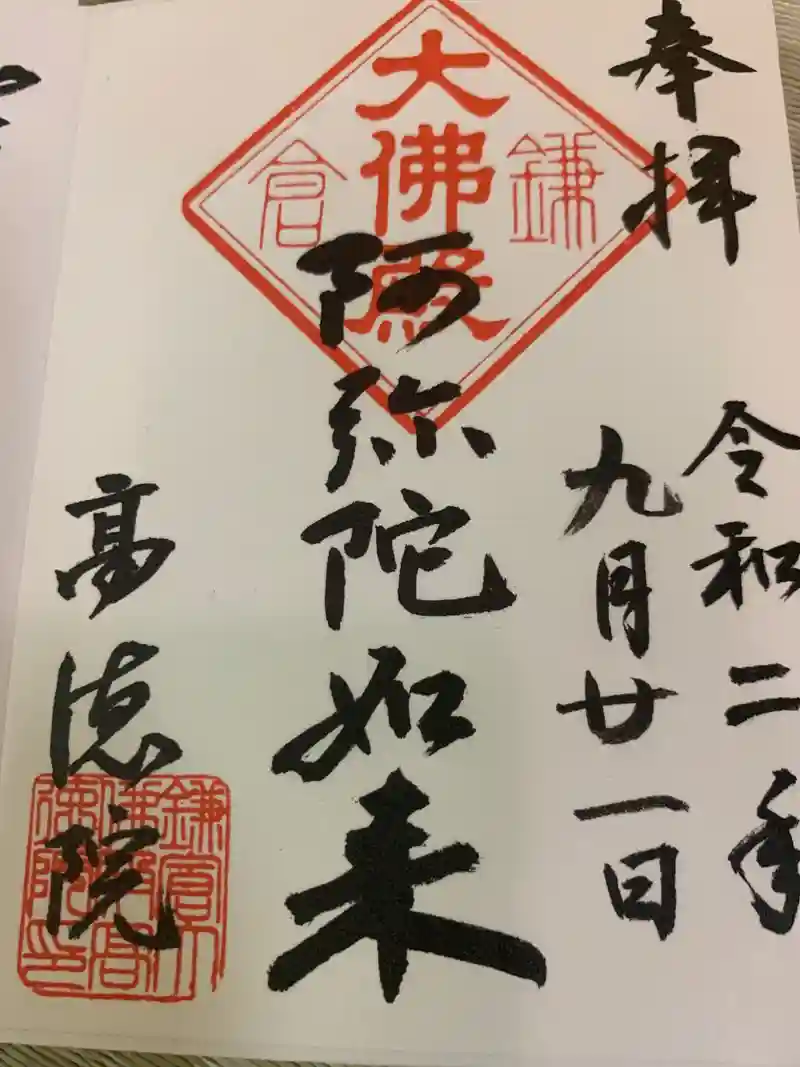 奉拝
令和二年
九月廿一日
鎌倉
大佛殿
阿弥陀如来
高徳院
鎌倉大
佛殿高
徳院印